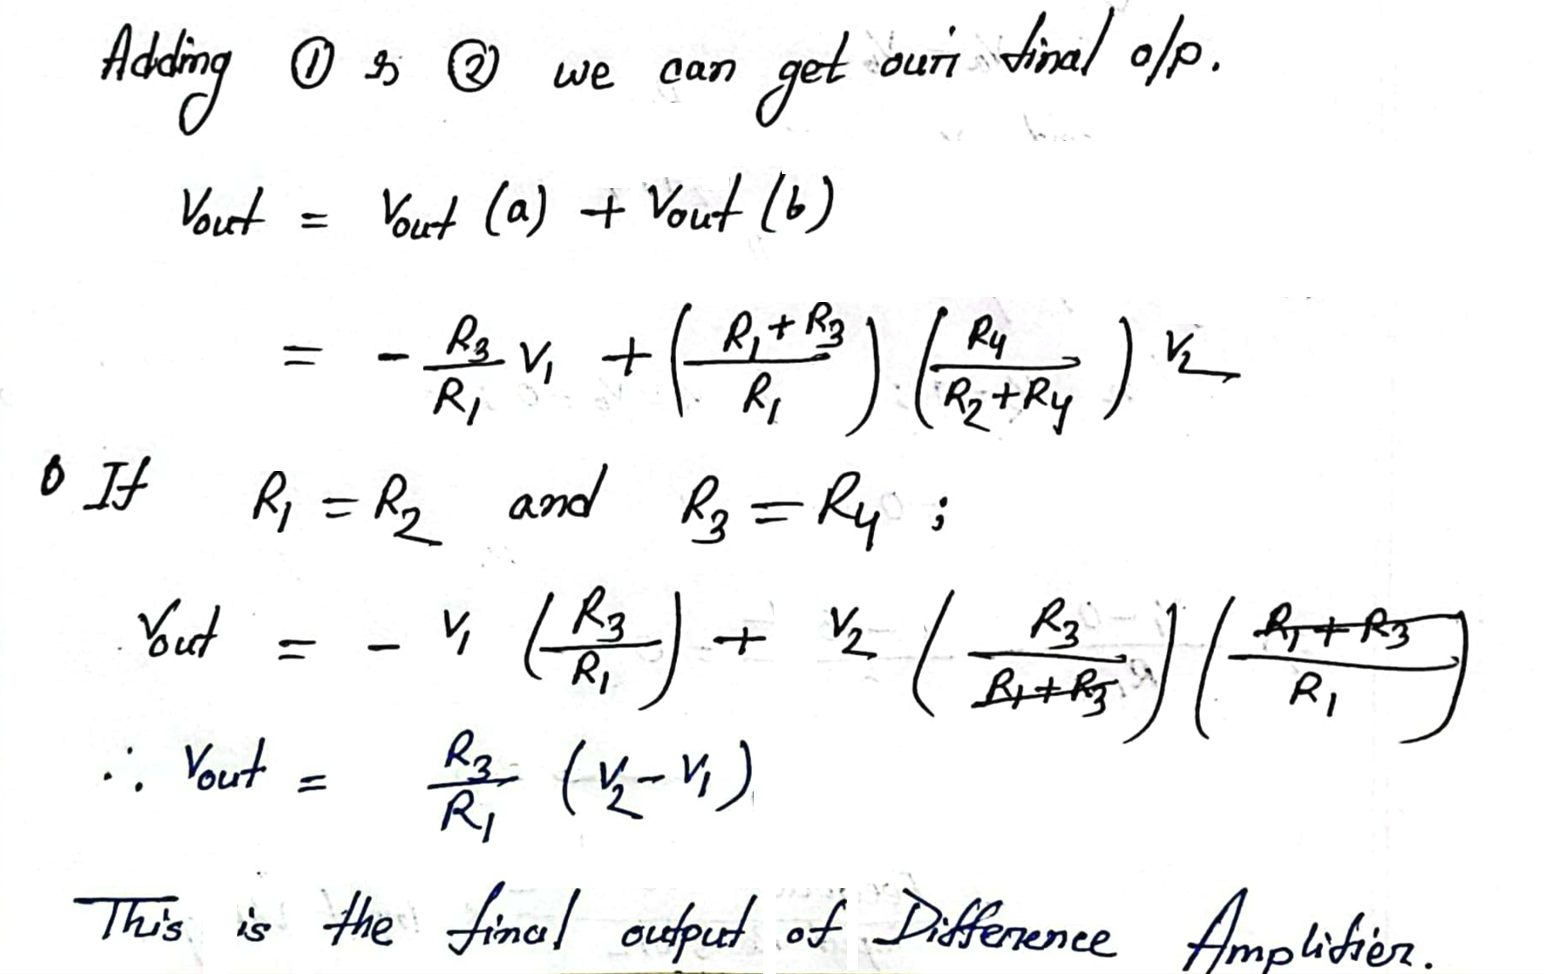 Adding ① & ② we can get our final o/p.
Vout = Vout (a) + Vout (b)
= - R3/R1 V1 + ((R1+R3)/R1) (R4/(R2+R4)) V2
If R1 = R2 and R3 = R4 ;
Vout = - V1 (R3/R1) + V2 (R3/(R1+R3)) ((R1+R3)/R1)
∴ Vout = R3/R1 (V2-V1)
This is the final output of Difference Amplifier.